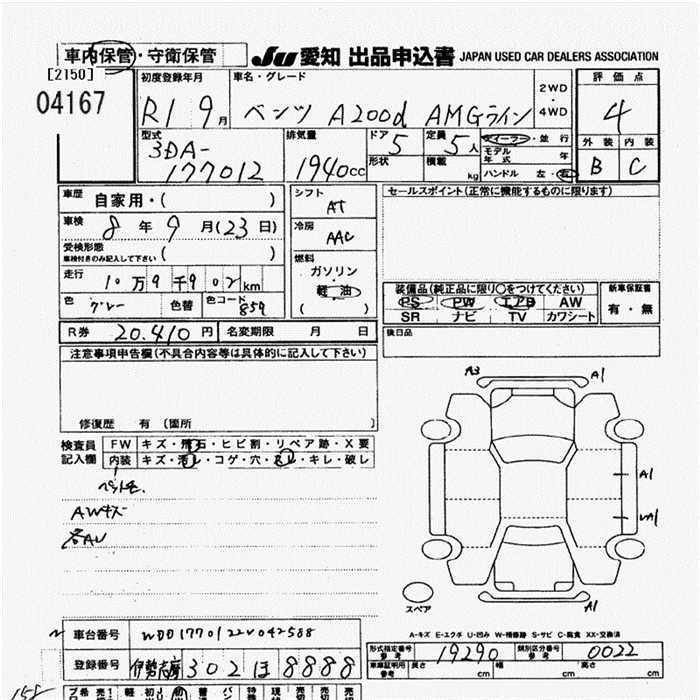 車内保管・守衛保管 JU 愛知 出品申込書 JAPAN USED CAR DEALERS ASSOCIATION
[2150]
04167
初度登録年月 車名・グレード 2WD・4WD 評価点
R1 9月 ベンツ A200d AMGライン 4
型式 排気量 ドア 定員 ディーラー・並行 外装 内装
3DA-177012 1940cc 5 5人 モデル年式 年 B C
形状 積載 kg ハンドル 左・右
車歴 自家用・( ) シフト AT セールスポイント(正常に機能するものに限ります)
車検 8年9月(23日) 冷房 AAC
受検形態 ( )
車検付きのみ記入して下さい
燃料 ガソリン 軽油 ( )
走行 10万9千902km 装備品(純正品に限り○をつけてください) 新車保証書
色 グレー 色替 色コード 859 PS PW エアB AW 有・無
SR ナビ TV カワシート
R券 20.410円 名変期限 月 日 後日品
注意事項申告欄(不具合内容等は具体的に記入して下さい)
修復歴 有 (箇所 )
検査員記入欄 FW キズ・飛石・ヒビ割・リペア跡・X要
内装 キズ・汚レ・コゲ・穴・スレ・キレ・破レ
ペット毛.
AWキズ
各AU
A3 A1
A1
A1
スペア A1
A-キズ E-エクボ U-凹み W-補修跡 S-サビ C-腐食 XX-交換済
車台番号 WDD1770122V042588
形式指定番号 参考 19290 類別区分番号 参考 0022
登録番号 伊勢志摩 302 ほ 8888
車庫証明用 参考 長さ cm 幅 cm 高さ cm
155